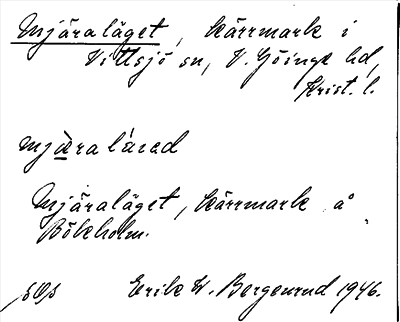 Mjäraläget, kärrmark i
Vittsjö sn, V. Göinge hd,
Krist. l.
mjæra lácad
Mjäraläget, kärrmark å
Bökholm.
Erik W. Bergenrud 1946.